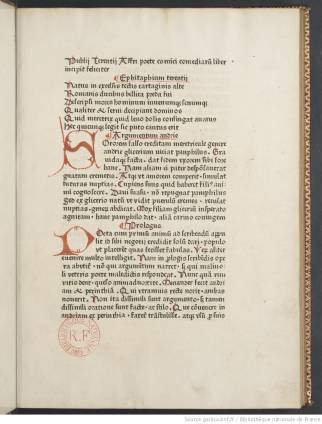 Publij Terentij Affri poete comici comediarū liber
incipit feliciter
Ephitaphium terentij
Natus in excelsis tectis cartaginis alte
Romanis ducibus bellica preda fui
Descripsi mores hominum iuuenumq; senumq;
Qualiter & serui decipiant dominos
Quid meretrix quid leno dolis confingat auarus
Hec quicunq; legit sic puto cautus erit
Argumentum andrie
Sororem falso creditam meretricule genere
andrie glicerium uiciat pamphilus. Gra
uidaq; facta. dat fidem uxorem sibi fore
hanc. Nam aliam ei pater desponsauerat
gnatam cremetis. Atq; ut amorem comperit. simulat
futuras nuptias. Cupiens suus quid haberet filius animi
cognoscere. Daui suasu. nō repugnat pamphilus
Sed ex glicerio natū ut uidit puerulū cremes. recusat
nuptias. generum abdicat. Mox filiam glicerium insperato
agnitam. hanc pamphilo dat. aliā carino coniugem
Prologus
Poeta cum primū animū ad scribendū appulit
Id sibi negocij credidit solū dari. populo
ut placerēt quas fecisset fabulas. Verum aliter
euenire multo intelligit. Nam in prologis scribēdis ope
ra abutitur. nō qui argumētum narret. sed qui maliuoli
ueteris poete maledictis respondeat. Nunc quā rem
uicio dent. queso animaduertite. Menander fecit andri
am & perinthiā. Qui utramuis recte norit. ambas
nouerit. Non ita dissimili sunt argumento. & tamen
dissimili oratione sunt facte. ac stilo. Que cōuenere in
andriam ex perinthia. fatetur trāstulisse. atq; usū pro suis
R.F.
Source gallica.bnf.fr / Bibliothèque nationale de France